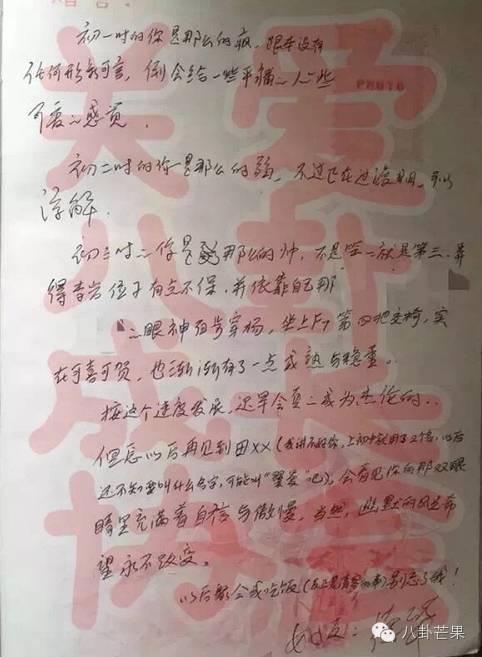 初一时的你是那么的疯,跟本没有
任何形象可言,倒会给一些平铺的人一些
可爱的感觉.
初二时的你是那么的弱,不过已在过渡期,可以
谅解.
初三时的你是那么的帅,不是第一就是第三,弄
得李岩位子有点不保,并依靠自己那
眼神 杀 全场,坐上F7第四把交椅,实
在可喜可贺,也渐渐有了一点成熟与稳重。
按这个速度发展,迟早会真的成为杰伦的..
但愿以后再见到田XX(我讲不好你,上初中就用了2个,以后
还不知要叫什么名字,可能叫“ ”吧),会看见你的那双眼
睛里充满着自信与傲慢,当然,幽默的风趣希
望永不改变。
以后聚会或吃饭( )别忘了我!
PHOTO
八卦芒果